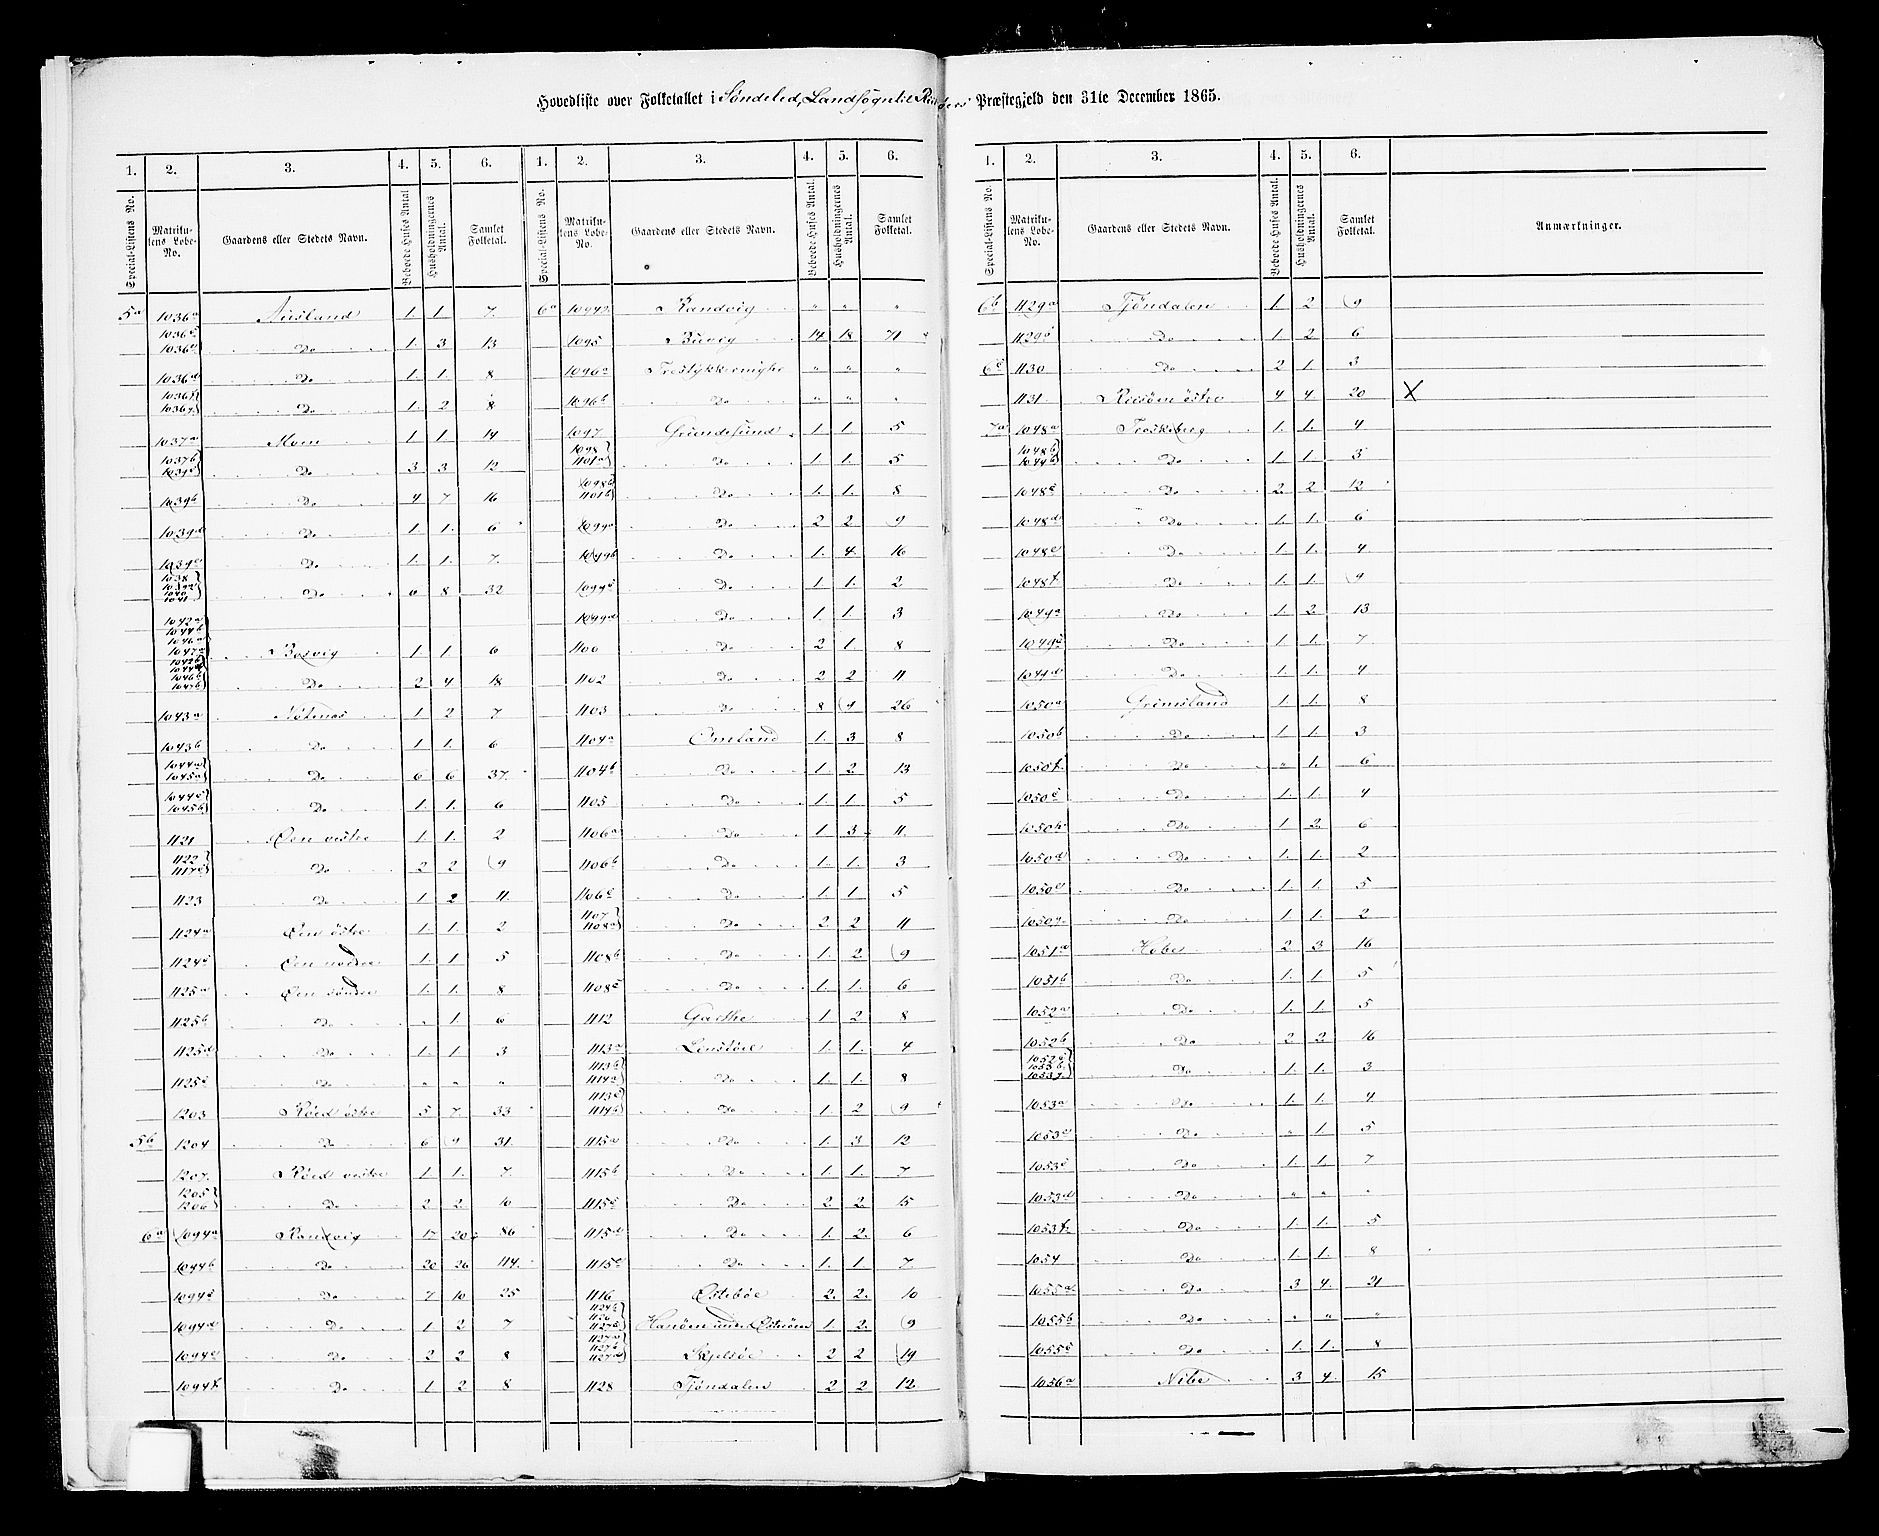 Hovedliste over Folketallet i Søndeled, Landsogn til Præstegjeld den 31te December 1865.
1. 2. 3. 4. 5. 6. 1. 2. 3. 4. 5. 6.
Special-Listens No. Matrikulens Løbe-No. Gaardens eller Stedets Navn. Beboede Huses Antal Husholdningernes Antal. Samlet Folketal. Special-Listens No. Matrikulens Løbe-No. Gaardens eller Stedets Navn. Beboede Huses Antal. Husholdningernes Antal. Samlet Folketal.
5a 1036a Ausland 1. 1. 7. 6a Randvig " " "
Do 1. 3 13 1095 Buvig 14 18 71
1036d Do 1. 1. 8 1096a " " "
Do 1. 2 8 1096b Do " " "
1037a Moen 1. 1. 14 1097 Grundesund 1. 1. 5
1037b Do 3 3 12 1098 1101a Do 1. 1. 5
1039b Do 4 7 16 1098b 1101b Do 1. 1. 8
1039d Do 1. 1. 6 1099a Do 2 2 9
1039e Do 1. 1. 7. 1099b Do 1. 4. 16
1038 1040 1041 Do 6 8 32 1099c Do 1. 1. 2
1042a 1044b 1099d Do 1. 1. 3
1046a 1047a Bosvig 1. 1. 6 1100 Do 2 1. 8
1046b 1047b Do 2 4 18 1102 Do 2 2 11
1043a 1 2 7 1103 Do 8 9 26
1043b Do 1. 1. 6 1104a Omland 1. 3 8
1044a 1045a Do 6 6 37. 1104b Do 1. 2 13
1044c 1045b Do 1. 1. 6 1105 Do 1. 1. 5
1121 Øen vestre 1. 1. 2 1106a Do 1 3 11.
1122 1117c Do 2 2 9 1106b Do 1. 1. 3
1123 Do 1. 2 11. 1106c Do 1 1 5
1124a Øen østre 1. 1. 2 1107 1108a Do 2 2 11
1124c Øen nordre 1. 1 5 1108b Do 1. 2 9
1125a Øen søndre 1. 1. 8 1108c Do 1. 1. 6
1125b Do . 1 6 1112 Garthe 1 2 8
1125d Do 1. 1. 3 1113a Lindstøl 1. 1. 4
1125c Do " " " 1113b 1114a Do 1. 1. 8
1203 Røed østre 5 7. 33 1113c 1114b Do 1. 2 9
5b 1204 Do 6 9 31. 1115a Do 1. 3 12
1207. Røed vestre 1. 1. 7 1115b Do 1. 1. 7
1205 1206 Do 2 2 10 1115c Do 2 2. 15
6a 1094a Randvig 17 20 86 1115d Do 1. 2. 6
1094b Do 20 26 114. 1115e Do 1. 1 7
1094c Do 7 10 25 1116 Østebøe 2. 2. 10
1094d Do 1 2 7 1126 Hasøen under Østerøen 1 2. 9
1094e Do 2 2 8 2 2 19
1094f Do 1 2 8 1128 Tjøndalen 2 2 12
1. 2. 3. 4. 5. 6.
Special-Listens No. Matrikulens Løbe-No. Gaardens eller Stedets Navn. Beboede Huses Antal. Husholdningernes Antal. Samlet Folketal. Anmærkninger.
6b 1129a Tjøndalen 1. 2 9
1129b Do 1 2 6
6c 1130 Do 2 1 3
1131 Risøen østre 4 4 20 X
7a 1048a Froskeberg 1. 1. 4
1048b Do 1. 1. 3
1048c Do 2. 2 12
1048d Do 1. 1. 6
1048e Do 1. 1. 4
1048f. Do 1. 1. 9
1049a Do 1. 2. 13
1049c Do 1. 1. 7
1049d Do 1. 1. 4
1050a Grimsland 1. 1. 8
1050b Do 1. 1. 3
1050f. Do " 1. 6
1050c Do 1. 1. 4
1050h Do 1 2. 6
1050d Do 1. 1. 2
1050e Do 1. 1. 5
1050g. Do 1. 1. 2
1051a Hobe 2. 3 16
1051b Do 1. 1. 5
1052a Do 1. 1. 5
1052b Do 2 2 16
1052c 1053b Do 1. 1. 3
1053a Do 1. 1. 4
1053e Do " 1 5
1053c Do 1. 1. 7
1053d Do " " "
1053f. Do 1. 1. 5
1054 Do 1. 1. 8
1055a Do 3 4. 21
1055b Do " " "
1055c Do 1. 1. 8
1056a Nibe 3 4. 15